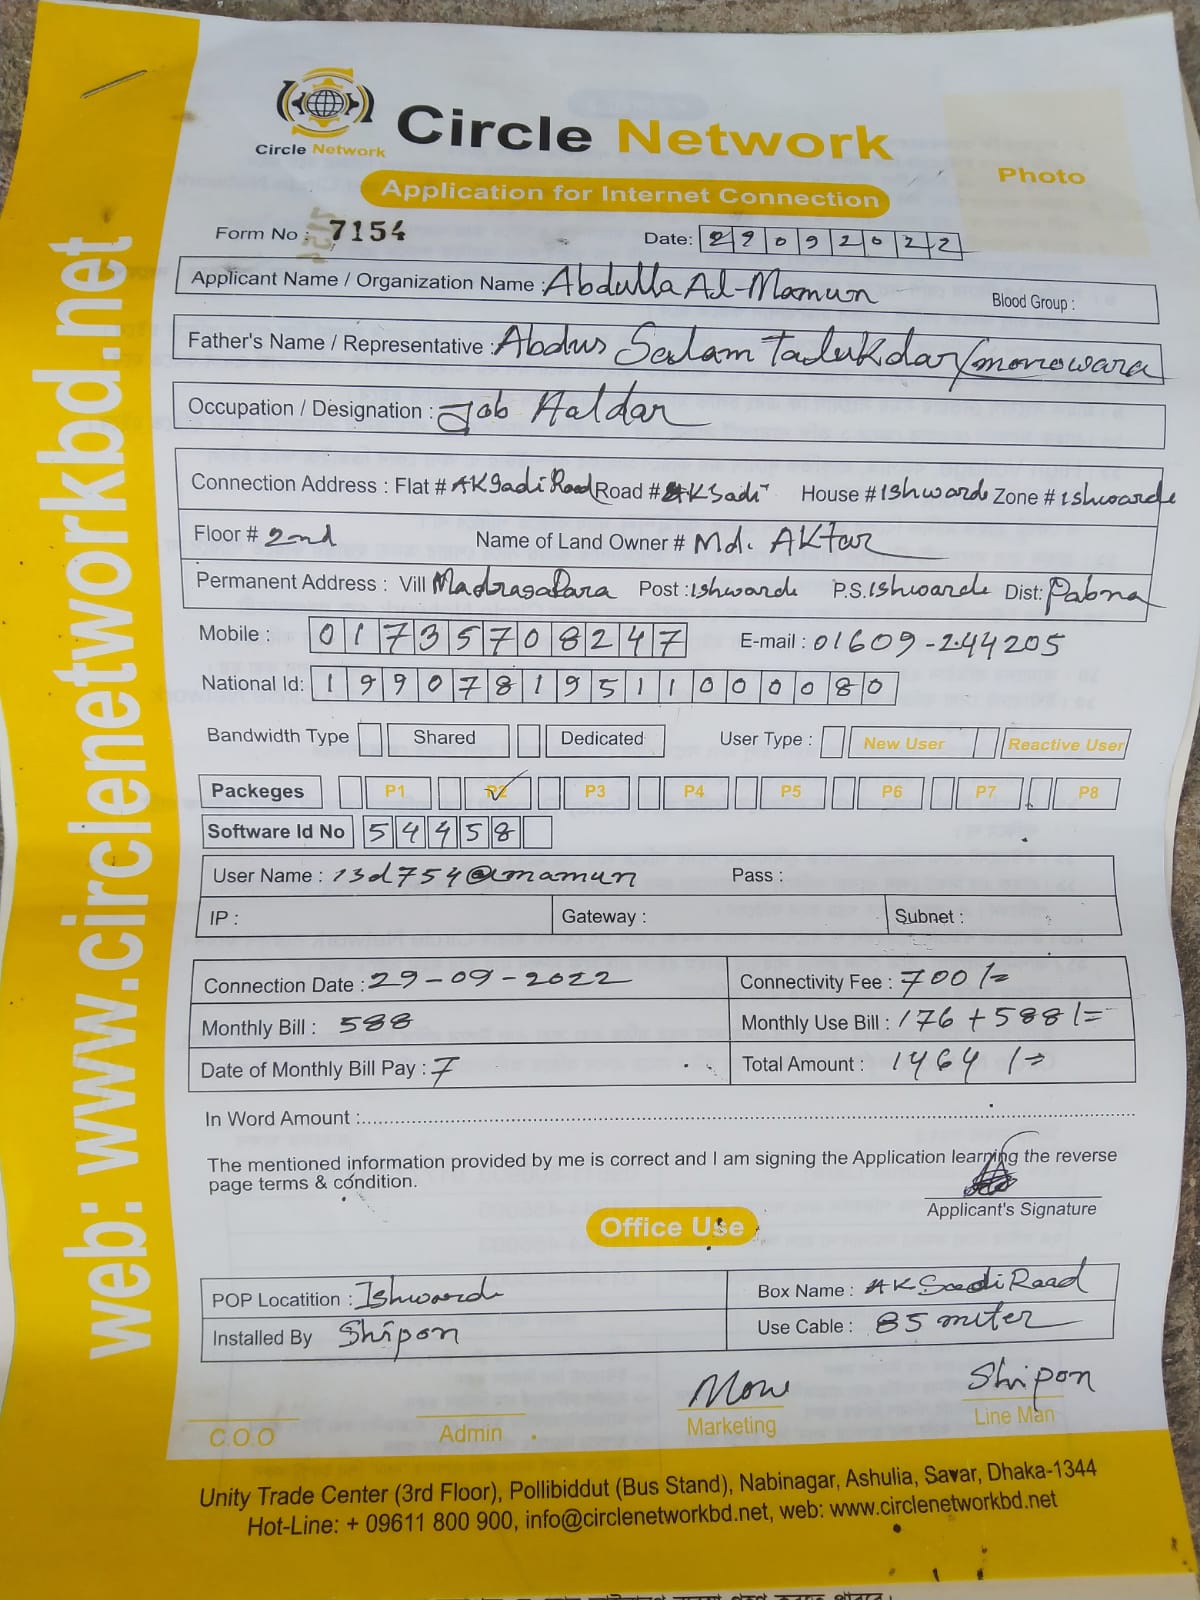 Circle Network
Circle Network
Photo
Application for Internet Connection
Form No : 7154
Date: 29092022
Applicant Name / Organization Name : Abdulla Al-Mamun Blood Group :
Father's Name / Representative : Abdus Salam Talukdar/monowara
Occupation / Designation : Job Haldar
Connection Address : Flat # AKSadi Road Road # AKSadi House # Ishwardi Zone # ishwardi
Floor # 2nd Name of Land Owner # Md. AKtar
Permanent Address : Vill Madrasapara Post : ishwardi P.S. Ishwardi Dist: Pabna
Mobile : 01735708247 E-mail : 01609-244205
National Id: 19907819511000080
Bandwidth Type Shared Dedicated User Type : New User Reactive User
Packeges P1 P2 P3 P4 P5 P6 P7 P8
Software Id No 54458
User Name : 13d754@mamun Pass :
IP : Gateway : Subnet :
Connection Date : 29-09-2022 Connectivity Fee : 700/=
Monthly Bill : 588 Monthly Use Bill : 176+588/=
Date of Monthly Bill Pay : 7 Total Amount : 1464/=
In Word Amount :
The mentioned information provided by me is correct and I am signing the Application learning the reverse
page terms & condition.
Applicant's Signature
Office Use
POP Locatition : Ishwardi Box Name : AK Saadi Raad
Installed By Shipon Use Cable : 85 miter
Shipon
C.O.O Admin Marketing Line Man
Unity Trade Center (3rd Floor), Pollibiddut (Bus Stand), Nabinagar, Ashulia, Savar, Dhaka-1344
Hot-Line: + 09611 800 900, info@circlenetworkbd.net, web: www.circlenetworkbd.net
web: www.circlenetworkbd.net